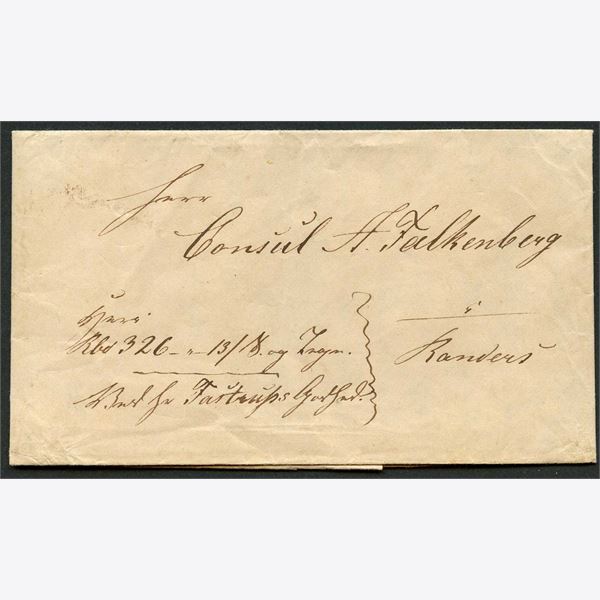 Herr
Consul A. Falkenberg
i
Randers
Heri
Rbd 326 – " – 13/ ß. og Tegn.
Ved Hr Fastrups Godhed.